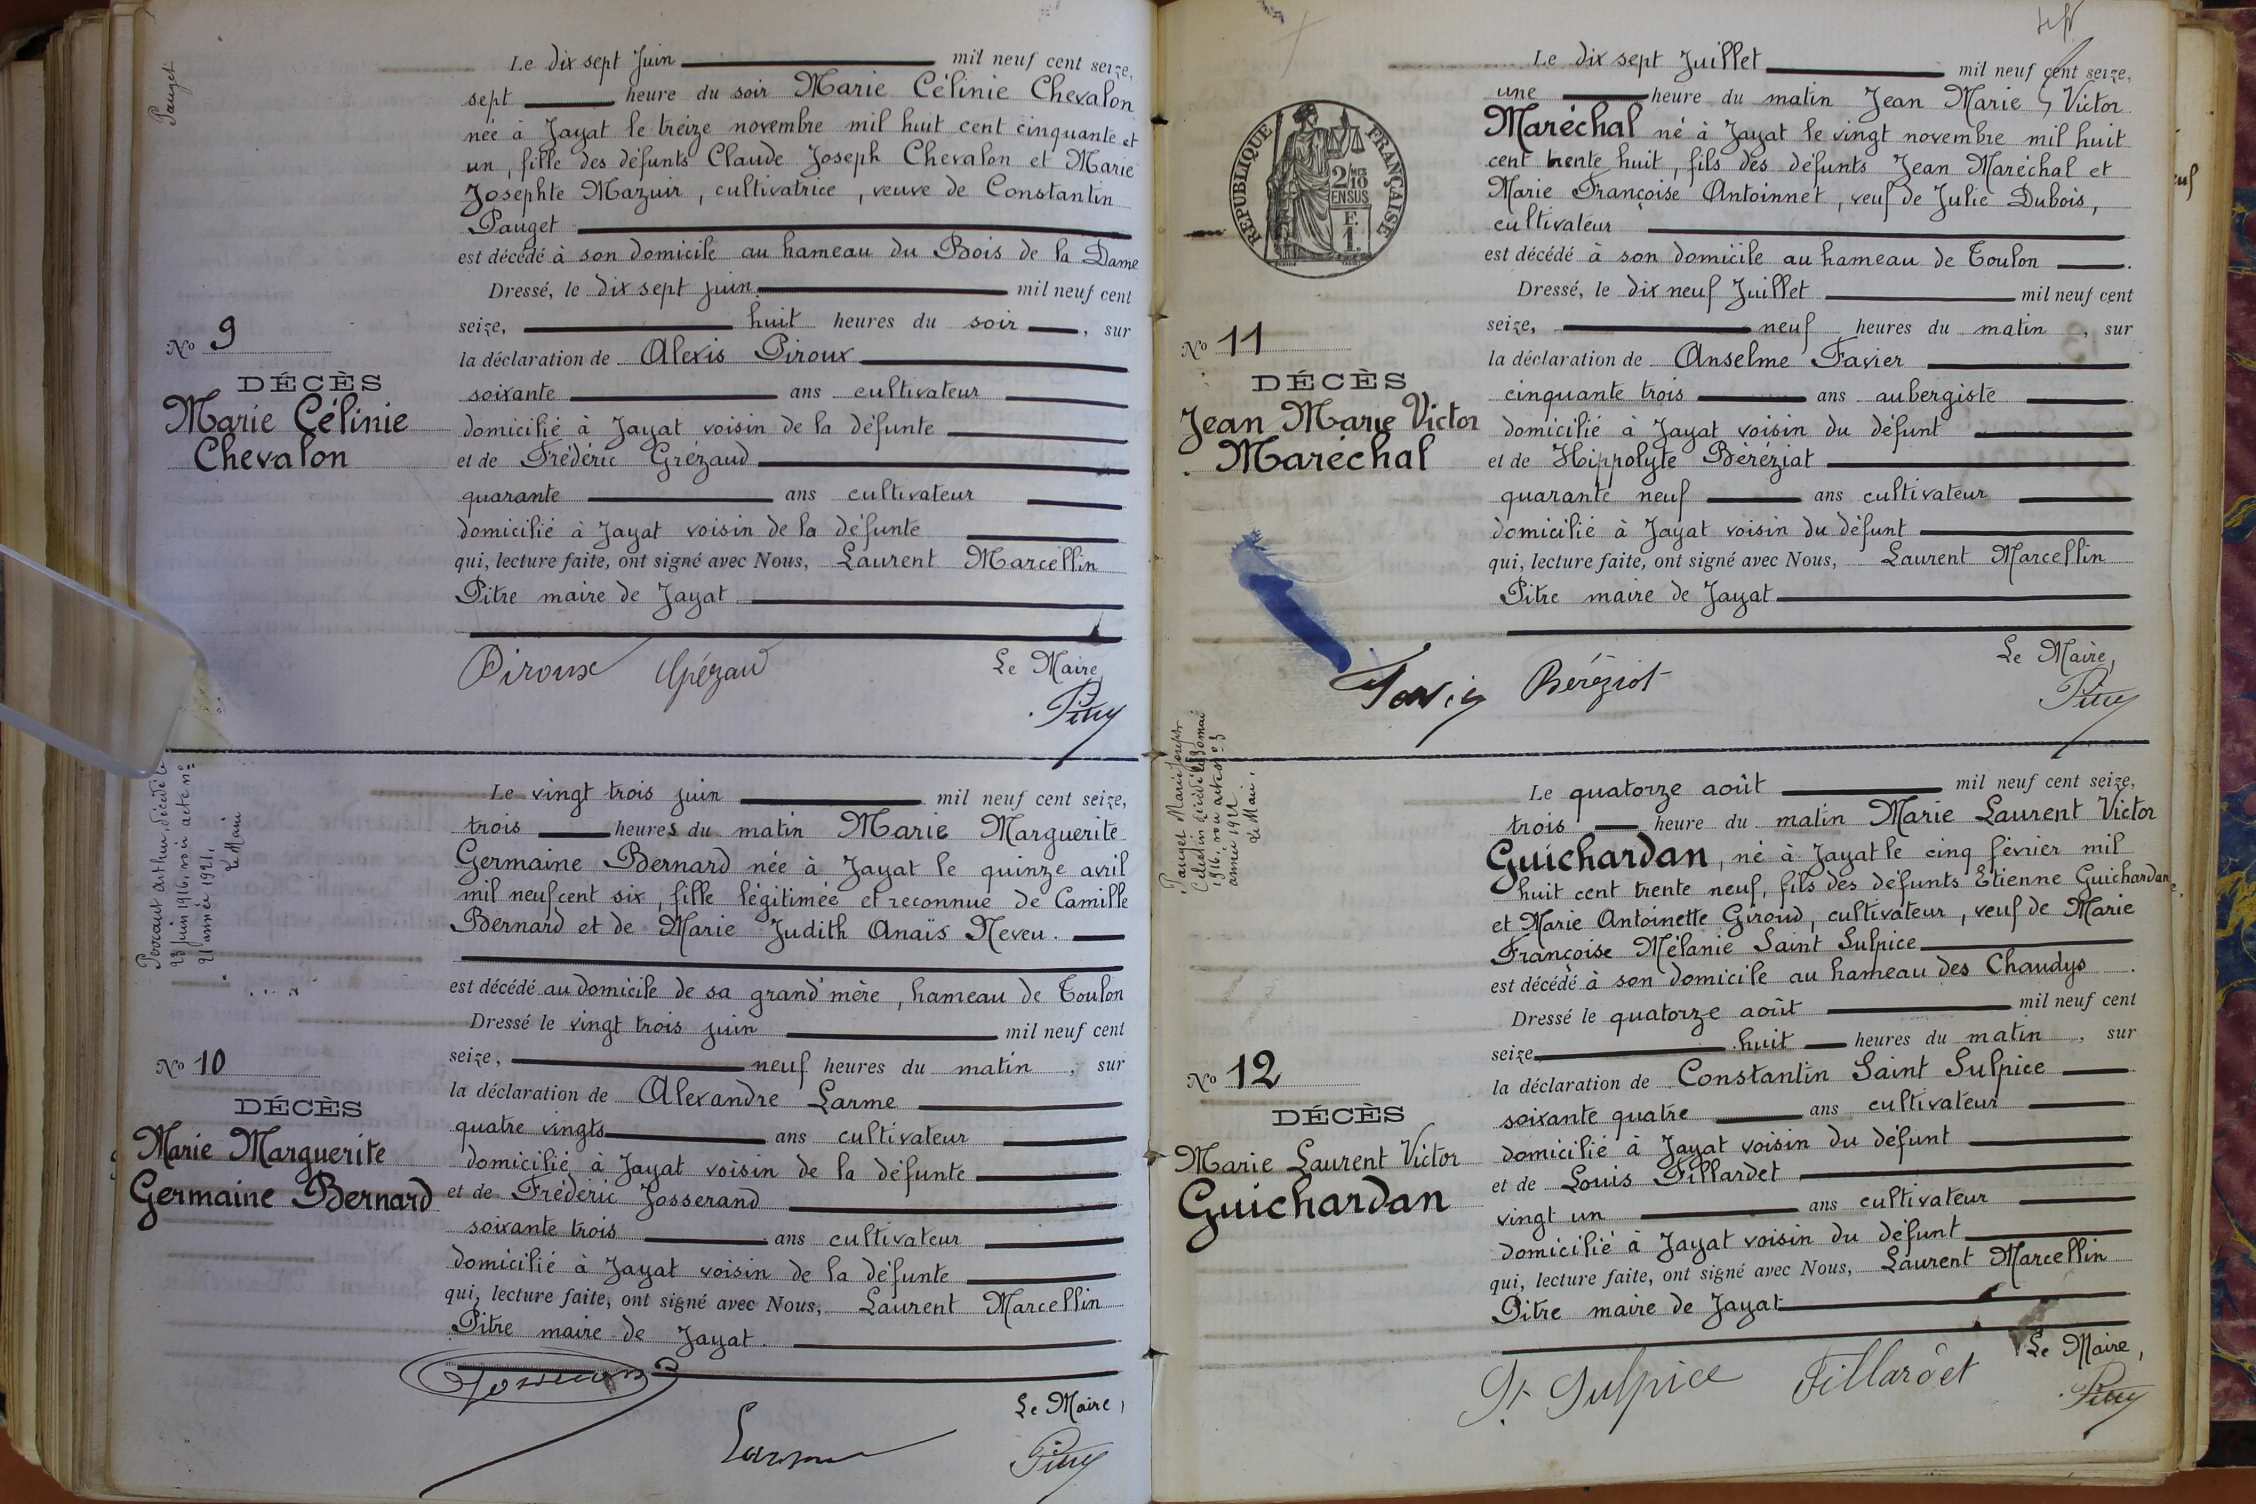 Pauget
Le dix sept Juin mil neuf cent seize,
sept heure du soir Marie Célinie Chevalon
née à Jayat le treize novembre mil huit cent cinquante et
un, fille des défunts Claude Joseph Chevalon et Marie
Josephte Mazuir, cultivatrice, veuve de Constantin
Pauget
est décédé à son domicile au hameau du Bois de la Dame
Dressé, le dix sept juin mil neuf cent
seize, huit heures du soir, sur
la déclaration de Alexis Piroux
soixante ans cultivateur
domicilié à Jayat voisin de la défunte
et de Frédéric Grézaud
quarante ans cultivateur
domicilié à Jayat voisin de la défunte
qui, lecture faite, ont signé avec Nous, Laurent Marcellin
Pitre maire de Jayat
No 9
DÉCÈS
Marie Célinie
Chevalon
Piroux Grézaud Le Maire,
Pitre
Perraut Arthur, décédé le
23 juin 1916, voir acte no
21 année 1921,
Le Maire
Le vingt trois juin mil neuf cent seize,
trois heures du matin Marie Marguerite
Germaine Bernard née à Jayat le quinze avril
mil neuf cent six, fille légitimée et reconnue de Camille
Bernard et de Marie Judith Anaïs Neveu.
est décédé au domicile de sa grand'mère, hameau de Toulon
Dressé le vingt trois juin mil neuf cent
seize, neuf heures du matin, sur
la déclaration de Alexandre Larme
quatre vingts ans cultivateur
domicilié à Jayat voisin de la défunte
et de Frédéric Josserand
soixante trois ans cultivateur
domicilié à Jayat voisin de la défunte
qui, lecture faite, ont signé avec Nous, Laurent Marcellin
Pitre maire de Jayat.
No 10
DÉCÈS
Marie Marguerite
Germaine Bernard
Josserand
Larme
Le Maire,
Pitre
RÉPUBLIQUE FRANÇAISE
2/10
EN SUS
F.
1.
Le dix sept Juillet mil neuf cent seize,
une heure du matin Jean Marie Victor
Maréchal né à Jayat le vingt novembre mil huit
cent trente huit, fils des défunts Jean Maréchal et
Marie Françoise Antoinnet, veuf de Julie Dubois,
cultivateur
est décédé à son domicile au hameau de Toulon.
Dressé, le dix neuf Juillet mil neuf cent
seize, neuf heures du matin, sur
la déclaration de Anselme Favier
cinquante trois ans aubergiste
domicilié à Jayat voisin du défunt
et de Hippolyte Béréziat
quarante neuf ans cultivateur
domicilié à Jayat voisin du défunt
qui, lecture faite, ont signé avec Nous, Laurent Marcellin
Pitre maire de Jayat
No 11
DÉCÈS
Jean Marie Victor
Maréchal
Favier Béréziat
Le Maire,
Pitre
Pauget Marie Joseph
1916, voir acte no 3
Le Maire,
Le quatorze août mil neuf cent seize,
trois heure du matin Marie Laurent Victor
Guichardan, né à Jayat le cinq février mil
huit cent trente neuf, fils des défunts Etienne Guichardan
et Marie Antoinette Giroud, cultivateur, veuf de Marie
Françoise Mélanie Saint Sulpice
est décédé à son domicile au hameau des Chaudys.
Dressé le quatorze août mil neuf cent
seize huit heures du matin, sur
la déclaration de Constantin Saint Sulpice
soixante quatre ans cultivateur
domicilié à Jayat voisin du défunt
et de Louis Fillardet
vingt un ans cultivateur
domicilié à Jayat voisin du défunt
qui, lecture faite, ont signé avec Nous, Laurent Marcellin
Pitre maire de Jayat
No 12
DÉCÈS
Marie Laurent Victor
Guichardan
St Sulpice Fillardet
Le Maire,
Pitre